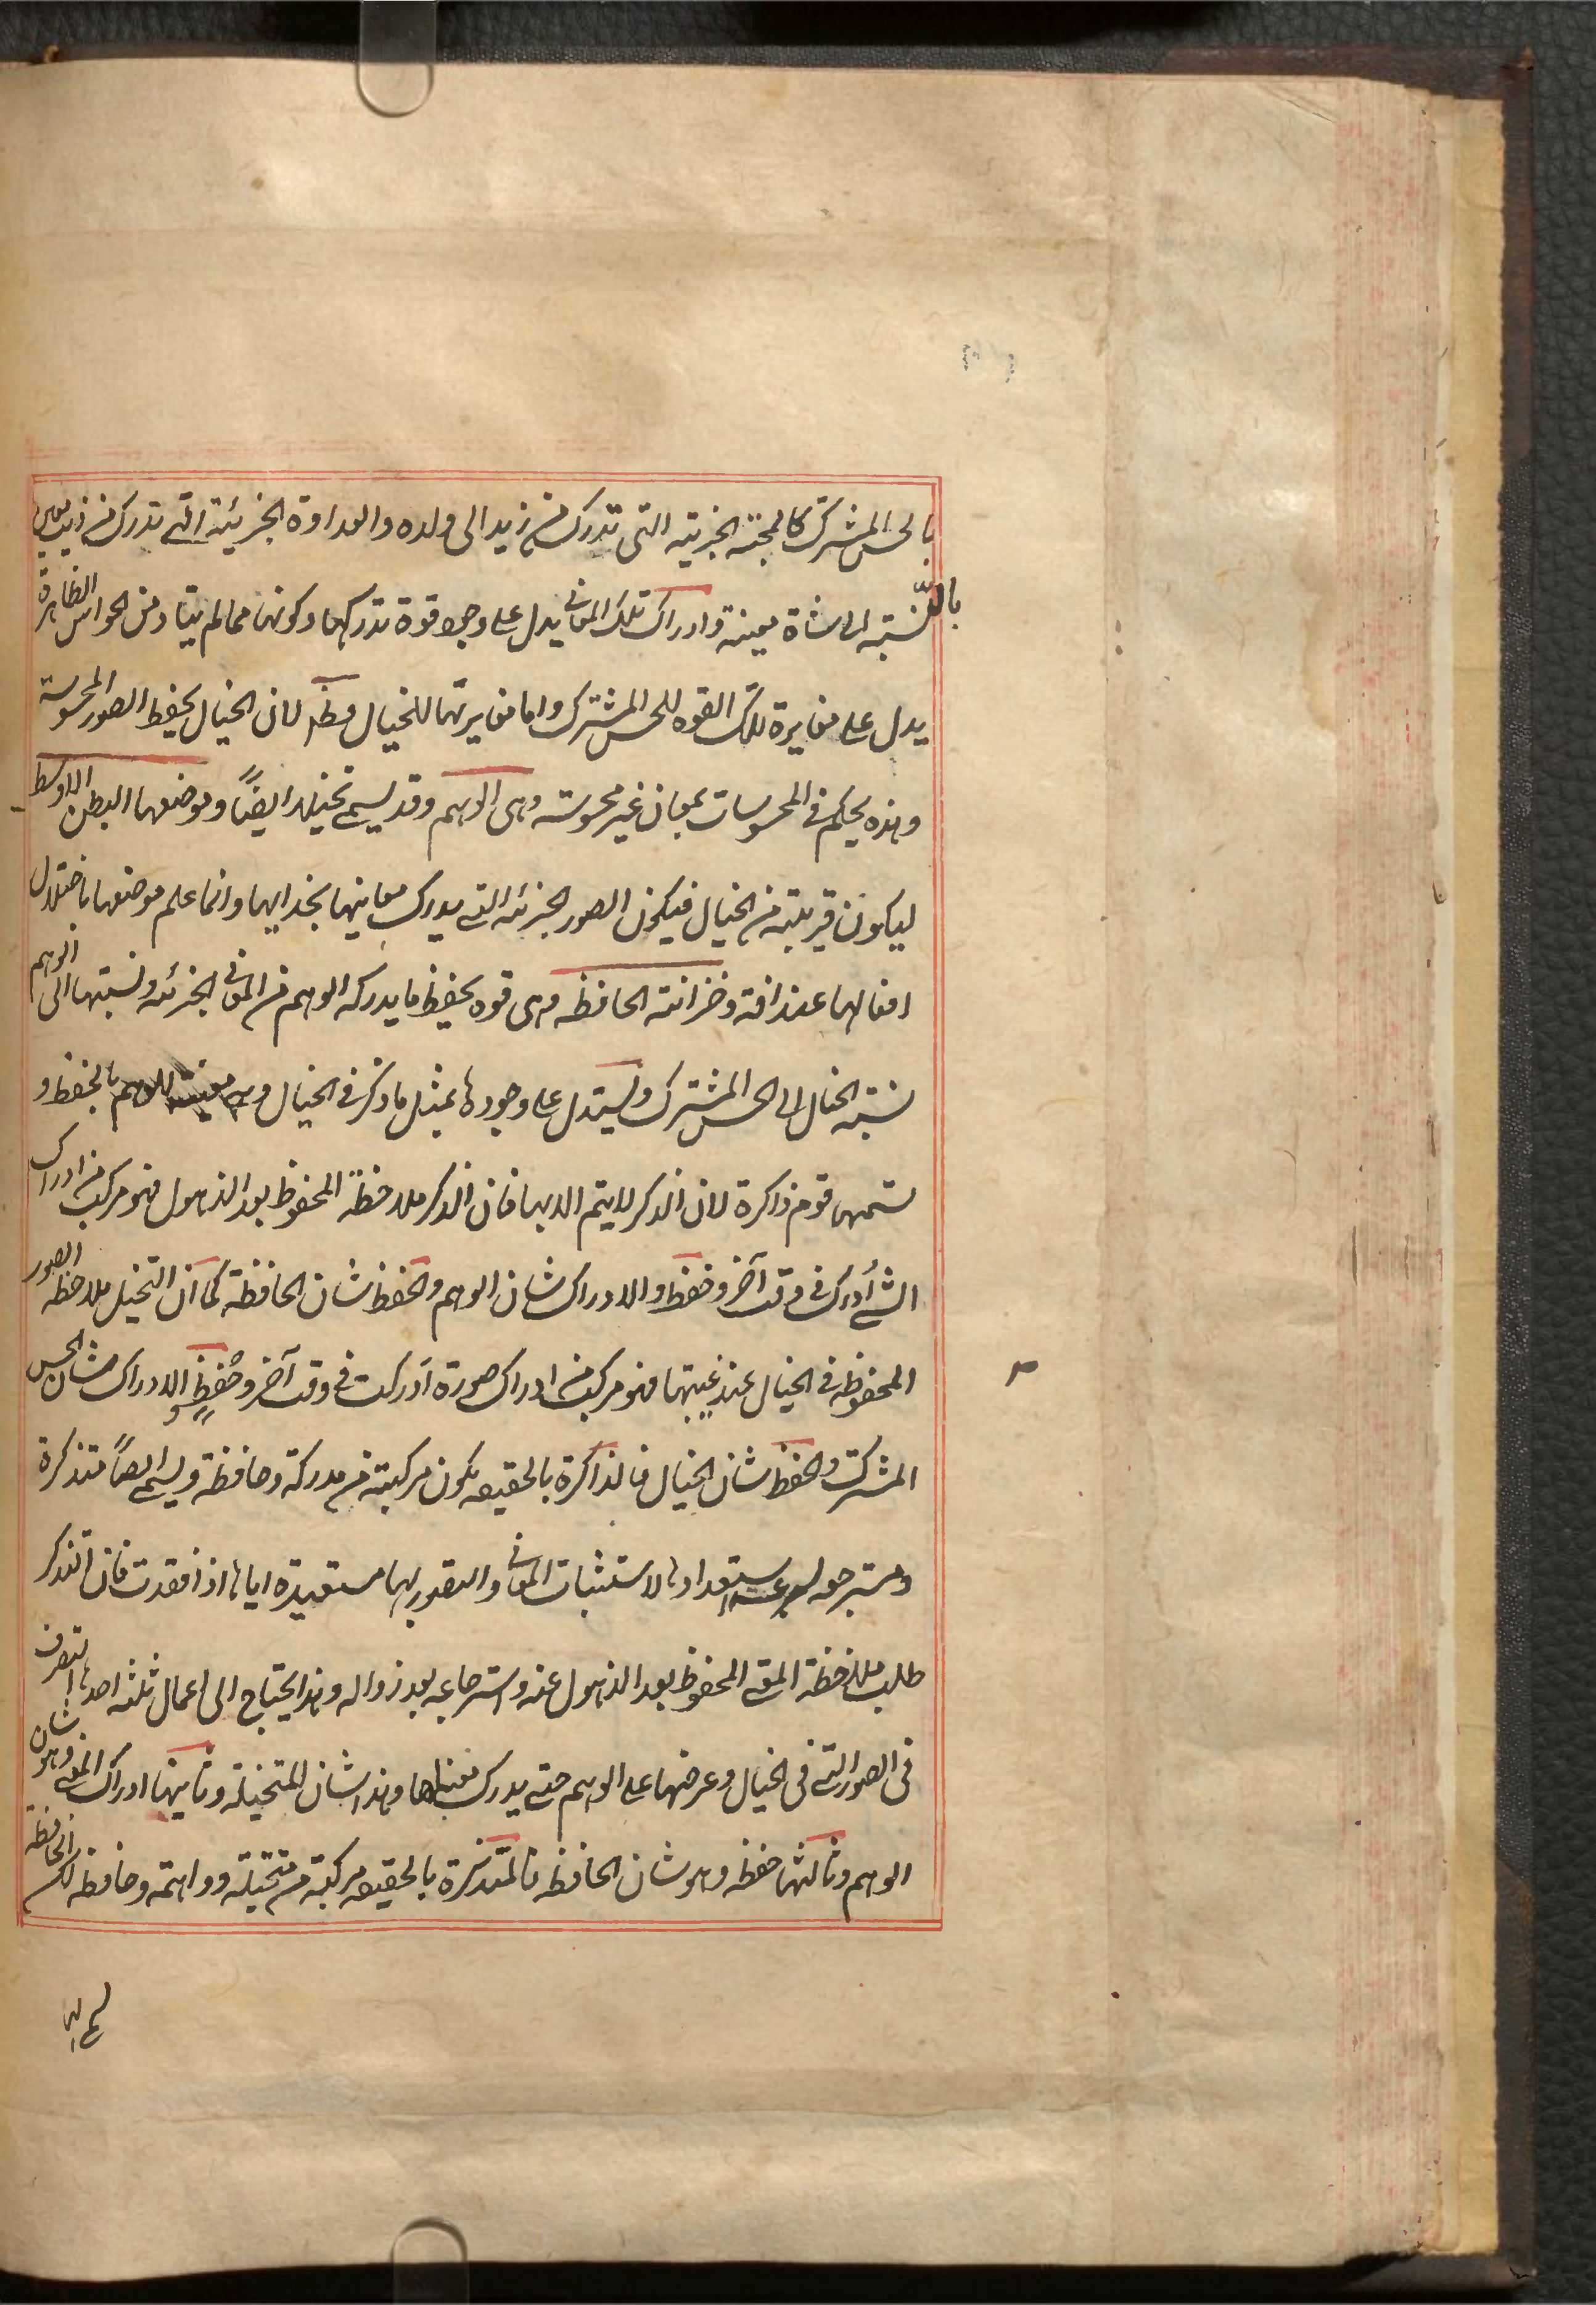 بالحس المشترك كالمحبة الجزئية التى تدرك من زيد الى ولده والعداوة الجزئية التى تدرك من ذئب معين
بالنسبة الى شاة معينة وادراك تلك المعانى يدل على وجود قوة تدركها وكونها مما لم يتاد من الحواس الظاهرة
يدل على مغايرة تلك القوه للحس المشترك واما مغايرتها للخيال فظ لان الخيال يحفظ الصور المحسوسة
وهذه يحكم فى المحسوسات بمعان غير محسوسته وهى الوهم وقد يسمى تخيلا ايضاً وموضعها البطن الاوسط
ليكون قريبته من الخيال فيكون الصور الجزئه التى يدرك معاينها بحذايها وانما علم موضعها باختلال
افعالها عند افة وخزانته الحافظه وهى قوه يحفظ ما يدركه الوهم من المعانى الجزئه ونسبتها الى الوهم
نسبته الخيال الى الحس المشترك ويستدل على وجودها بمثل ما ذكر فى الخيال وهى معينه للوهم بالحفظ و
تسميها قوم ذاكرة لان الذكر لا يتم الا بها فان الذكر ملاحظة المحفوظ بعد الذهول فهو مركب من ادراك
الشئ أدرك فى وقت آخر وحفظ والادراك شان الوهم والحفظ شان الحافظة كما ان التخيل ملاحظه الصور
المحفوظه فى الخيال عند غيبتها فهو مركب من ادراك صورة ادركت فى وقت آخر وحُفِظٍ و الادراك شان الحس
المشرك والحفظ شان الخيال فالذاكرة بالحقيقه يكون مركبة من مدركة وحافظة ويسمى ايضاً متذكرة
ومسترجعه لسرعة استعدادها لاستثبات المعانى والتصور بها مستعيدة اياها اذا فقدت فان التذكر
طلب ملاحظة المعنى المحفوظ بعد الذهول عنه واسترجاعه بعد زواله وهذا يحتاج الى اعمال ثلثه احدها التصرف
فى الصور التى فى الخيال وعرضها على الوهم حتى يدرك معناها وهذا شان المتخيلة وثاينها ادراك المعنى وهو شان
الوهم وثالثها حفظه وهو شان الحافظه فالمتذكرة بالحقيقه مركبة من متخيلة وواهمة وحافظه لكن الحافظة